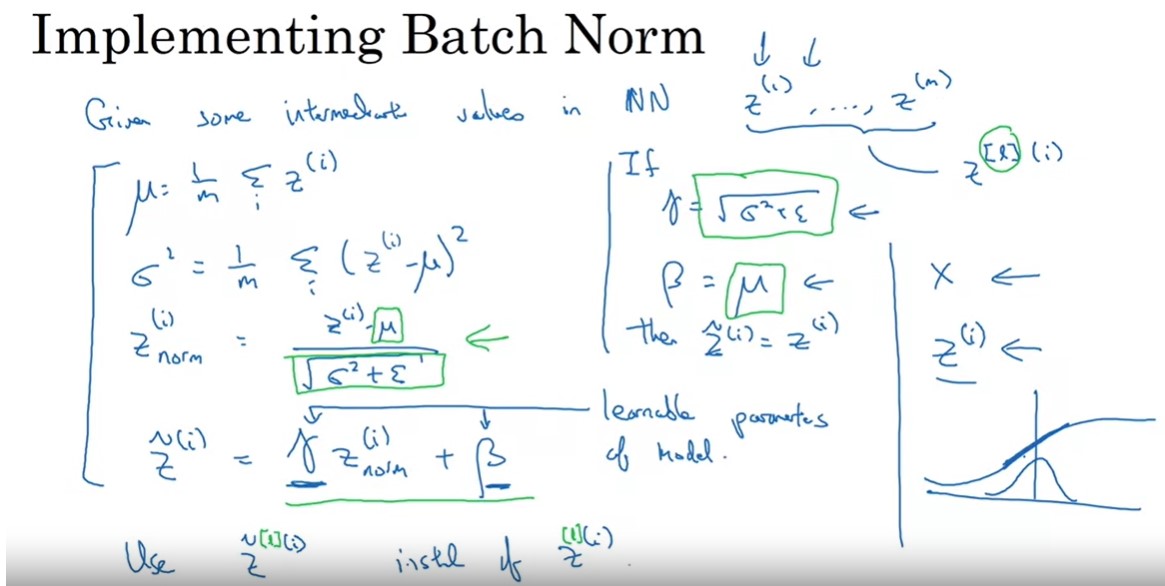 Implementing Batch Norm
Given some intermediate values in NN z^(i), ...., z^(m)
z^[l](i)
μ = 1/m Σ_i z^(i)
σ² = 1/m Σ_i (z^(i) - μ)²
z_norm^(i) = (z^(i) - μ) / √(σ² + ε)
z̃^(i) = γ z_norm^(i) + β
learnable parameters
of model.
If
γ = √(σ² + ε) ←
β = μ ←
then z̃^(i) = z^(i)
X ←
z^(i) ←
Use z̃^[l](i) instead of z^[l](i).